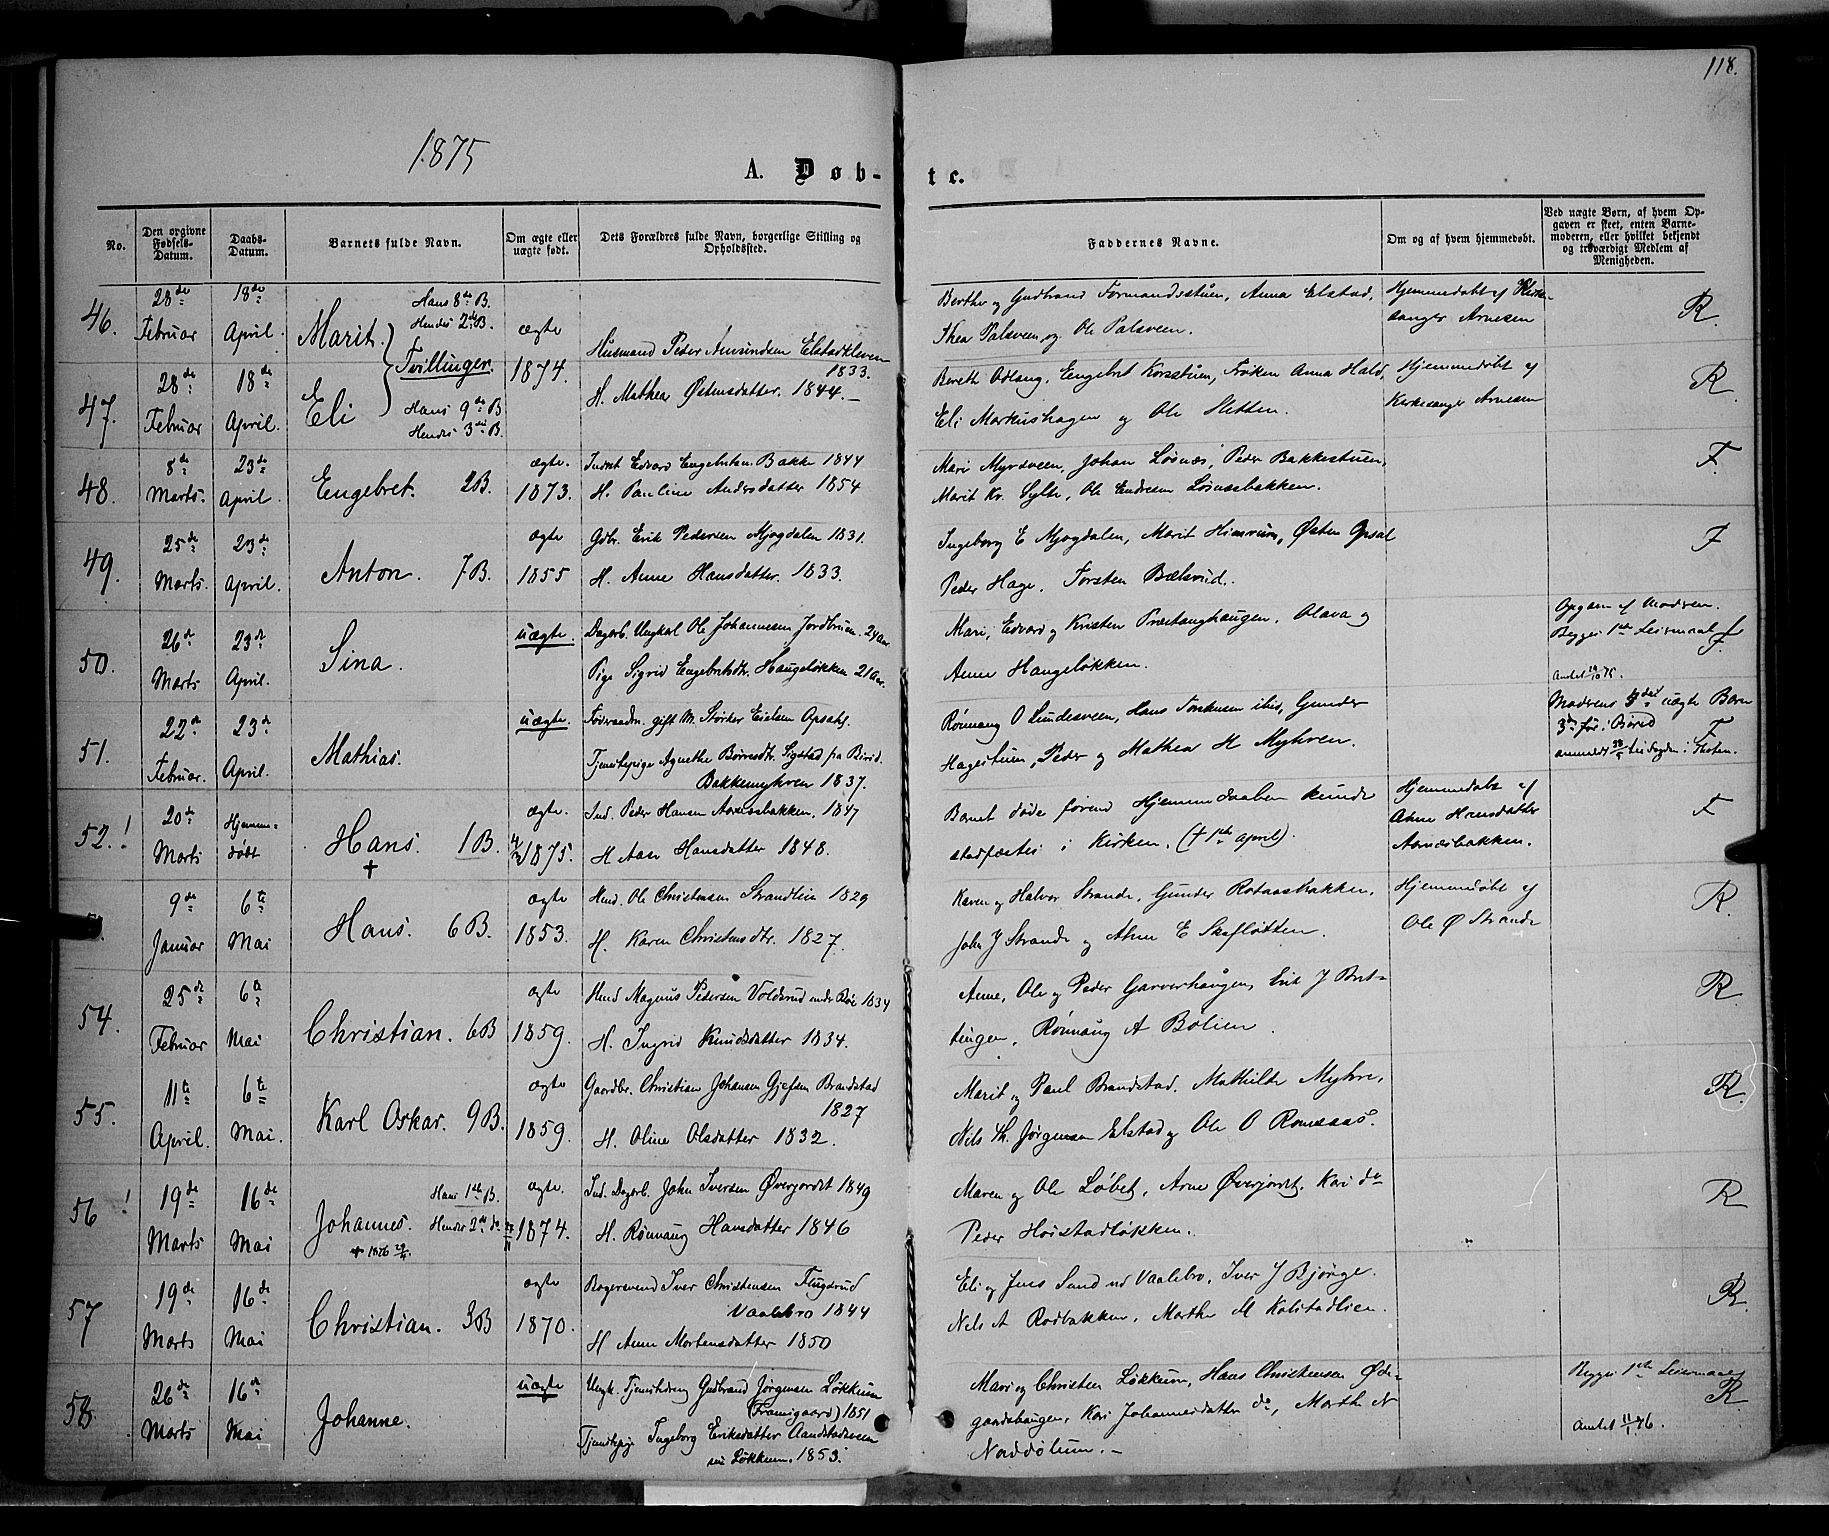 118.
1875
A. Døb-
te.
No.
Den orgivne Fødsels-Datum.
Daabs-Datum.
Barnets fulde Navn.
Om ægte eller uægte født.
Dets Forældres fulde Navn, borgerlige Stilling og Opholdssted.
Faddernes Navne.
Om og af hvem hjemmedøbt.
Ved uægte Børn, af hvem Op-
gaven er skeet, enten Barne-
moderen, eller hvilket bekjendt
og troværdigt Medlem af
Menigheden.
46. 28de Februar 18de April. Marit. Hans 8de B. Hendes 2den B. ægte
Tvillinger. 1874.
Husmand Peder Amundsen Elstadkleven 1833.
H. Mathea Østensdatter. 1844.-
Berthe og Gudbrand Formandsstuen, Anna Elstad,
Thea Palsveen og Ole Palsveen.
Hjemmedøbt af Kirke-
sanger Arnesen
R.
47. 28de Februar 18de April. Eli Hans 9de B Hendes 3die B.
Bereth Odlang, Engebret Korsstuen, Frøken Anna Hald,
Eli Markushagen og Ole Sletten.
Hjemmedøbt af
Kirkesanger Arnesen
R
48. 8de Marts. 23de April. Engebret. 2B. ægte. 1873.
Inderst Edvard Engebretsen Bakke 1844
H. Pauline Andersdatter 1854
Mari Myrdveen, Johan Løsnæs, Peder Bakkestuen,
Marit Kr. Sylte, Ole Endresen Løsnæsbakken.
F.
49. 25de Marts. 23de April. Anton. 7B. ægte 1855
Gdbr. Erik Pedersen Mjogdalen 1831.
H. Anne Hansdatter. 1833.
Ingeborg E Mjogdalen, Marit Himrum, Østen Opsal
Peder Hage, Torsten Bælsvud.
F
50. 26de Marts 23de April. Sina. uægte.
Dagarb. Ungkarl Ole Johannesen Jordbruen. 24 Aar
Pige Sigrid Engebretsdtr. Haugeløkken 21 Aar.
Mari, Edvard og Kristen Præstanghaugen, Olava og
Anne Haugeløkken.
Opgave af Moderen.
Begges 1ste Leiermaal
F
51. 22de Februar. 23de April. Mathias. uægte.
Føderaadm. gift M. Størker Eielsen Opsahl.
Tjenestepige Agnethe Børresdtr. Sigstad fra Birid.
Bakkemyhren 1837.
Rønnaug O Lundesveen, Hans Torstensen ibid, Gunder
Hagestuen, Peder og Mathea H Myhren.
Moderens uægte Barn
F
52.! 20de Marts Hjemme-
døbt Hans. † 1B. ægte. 1875.
Ind. Peder Hansen Aarnesbakken. 1847
H Aase Hansdatter 1848.
Barnet døde førend Hjemmedaaben kunde
stadfæstes i Kirken. († 1ste April).
Hjemmedøbt af
Anne Hansdatter
Aarnesbakken.
F
9de Januar 6te Mai Hans. 6B. ægte 1853.
Hmd. Ole Christensen Strandlie 1829
H. Karen Christensdtr. 1827.
Karen og Halvor Strande, Gunder Rotnæsbakken,
John J Strande og Anne E Skafløtten.
Hjemmedøbt af
Ole Ø Strande
R.
54. 25de Februar 6te Mai Christian. 6B ægte 1859.
Hmd Magnus Pedersen Voldsrud under Bøe 1834
H. Ingrid Knudsdatter 1834.
Anne, Ole og Peder Garverhaugen, Erik J Bret-
tingen, Rønnaug A Bølien.
R.
55. 11te April. 6te Mai. Karl Oskar. 9B. ægte 1859.
Gaardbr. Christian Johansen Gjefsen Brandstad 1827
H. Oline Olsdatter 1832.
Marit og Paul Brandstad. Mathilde Myhre,
Nils Th. Jørgensen Elstad og Ole O Romsaas.
R.
56! 19de Marts 16de Mai Johannes. Hans 1ste B. Hendes 2den do † 1876 ægte. 1874.
Ind. Dagarb. John Iversen Øvergordet 1849
H. Rønnaug Hansdatter 1846
Maren og Ole Løbet, Arne Øverjordet, Kari do
Peder Høistadløkken.
R
57 19de Marts 16de Mai Christian. 3B ægte 1870.
Bagersvend Iver Christensen Flugsrud
Vaalebro 1844
H Anne Mortensdatter 1850
Eli og Jens Sund ved Vaalebro, Iver J Bjørge.
Nels A Rodbakken, Marthe M Kolstadlien.
R
58 26de Marts 16de Mai Johanne. uægte
Ungk. Tjenestedreng Gudbrand Jørgensen Løkkum
(Framigaard) 1851
Tjenstepige Ingeborg Eriksdatter Aandstadsveen
Løkkum. 1853.
Mari og Christen Løkkum, Hans Christensen Øde-
gaardshaugen, Kari Johannesdatter do, Marthe N
Naddølum.-
Begges 1ste Leiermaal
R
Anmeldt 11/1 76.